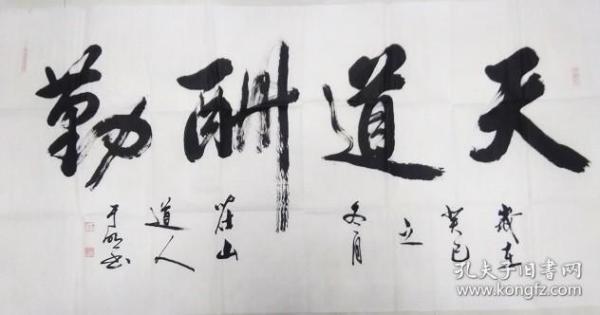 天道酬勤
歲在
癸巳
立
冬月
崔山
道人
于明书
孔夫子旧书网
www.kongfz.com